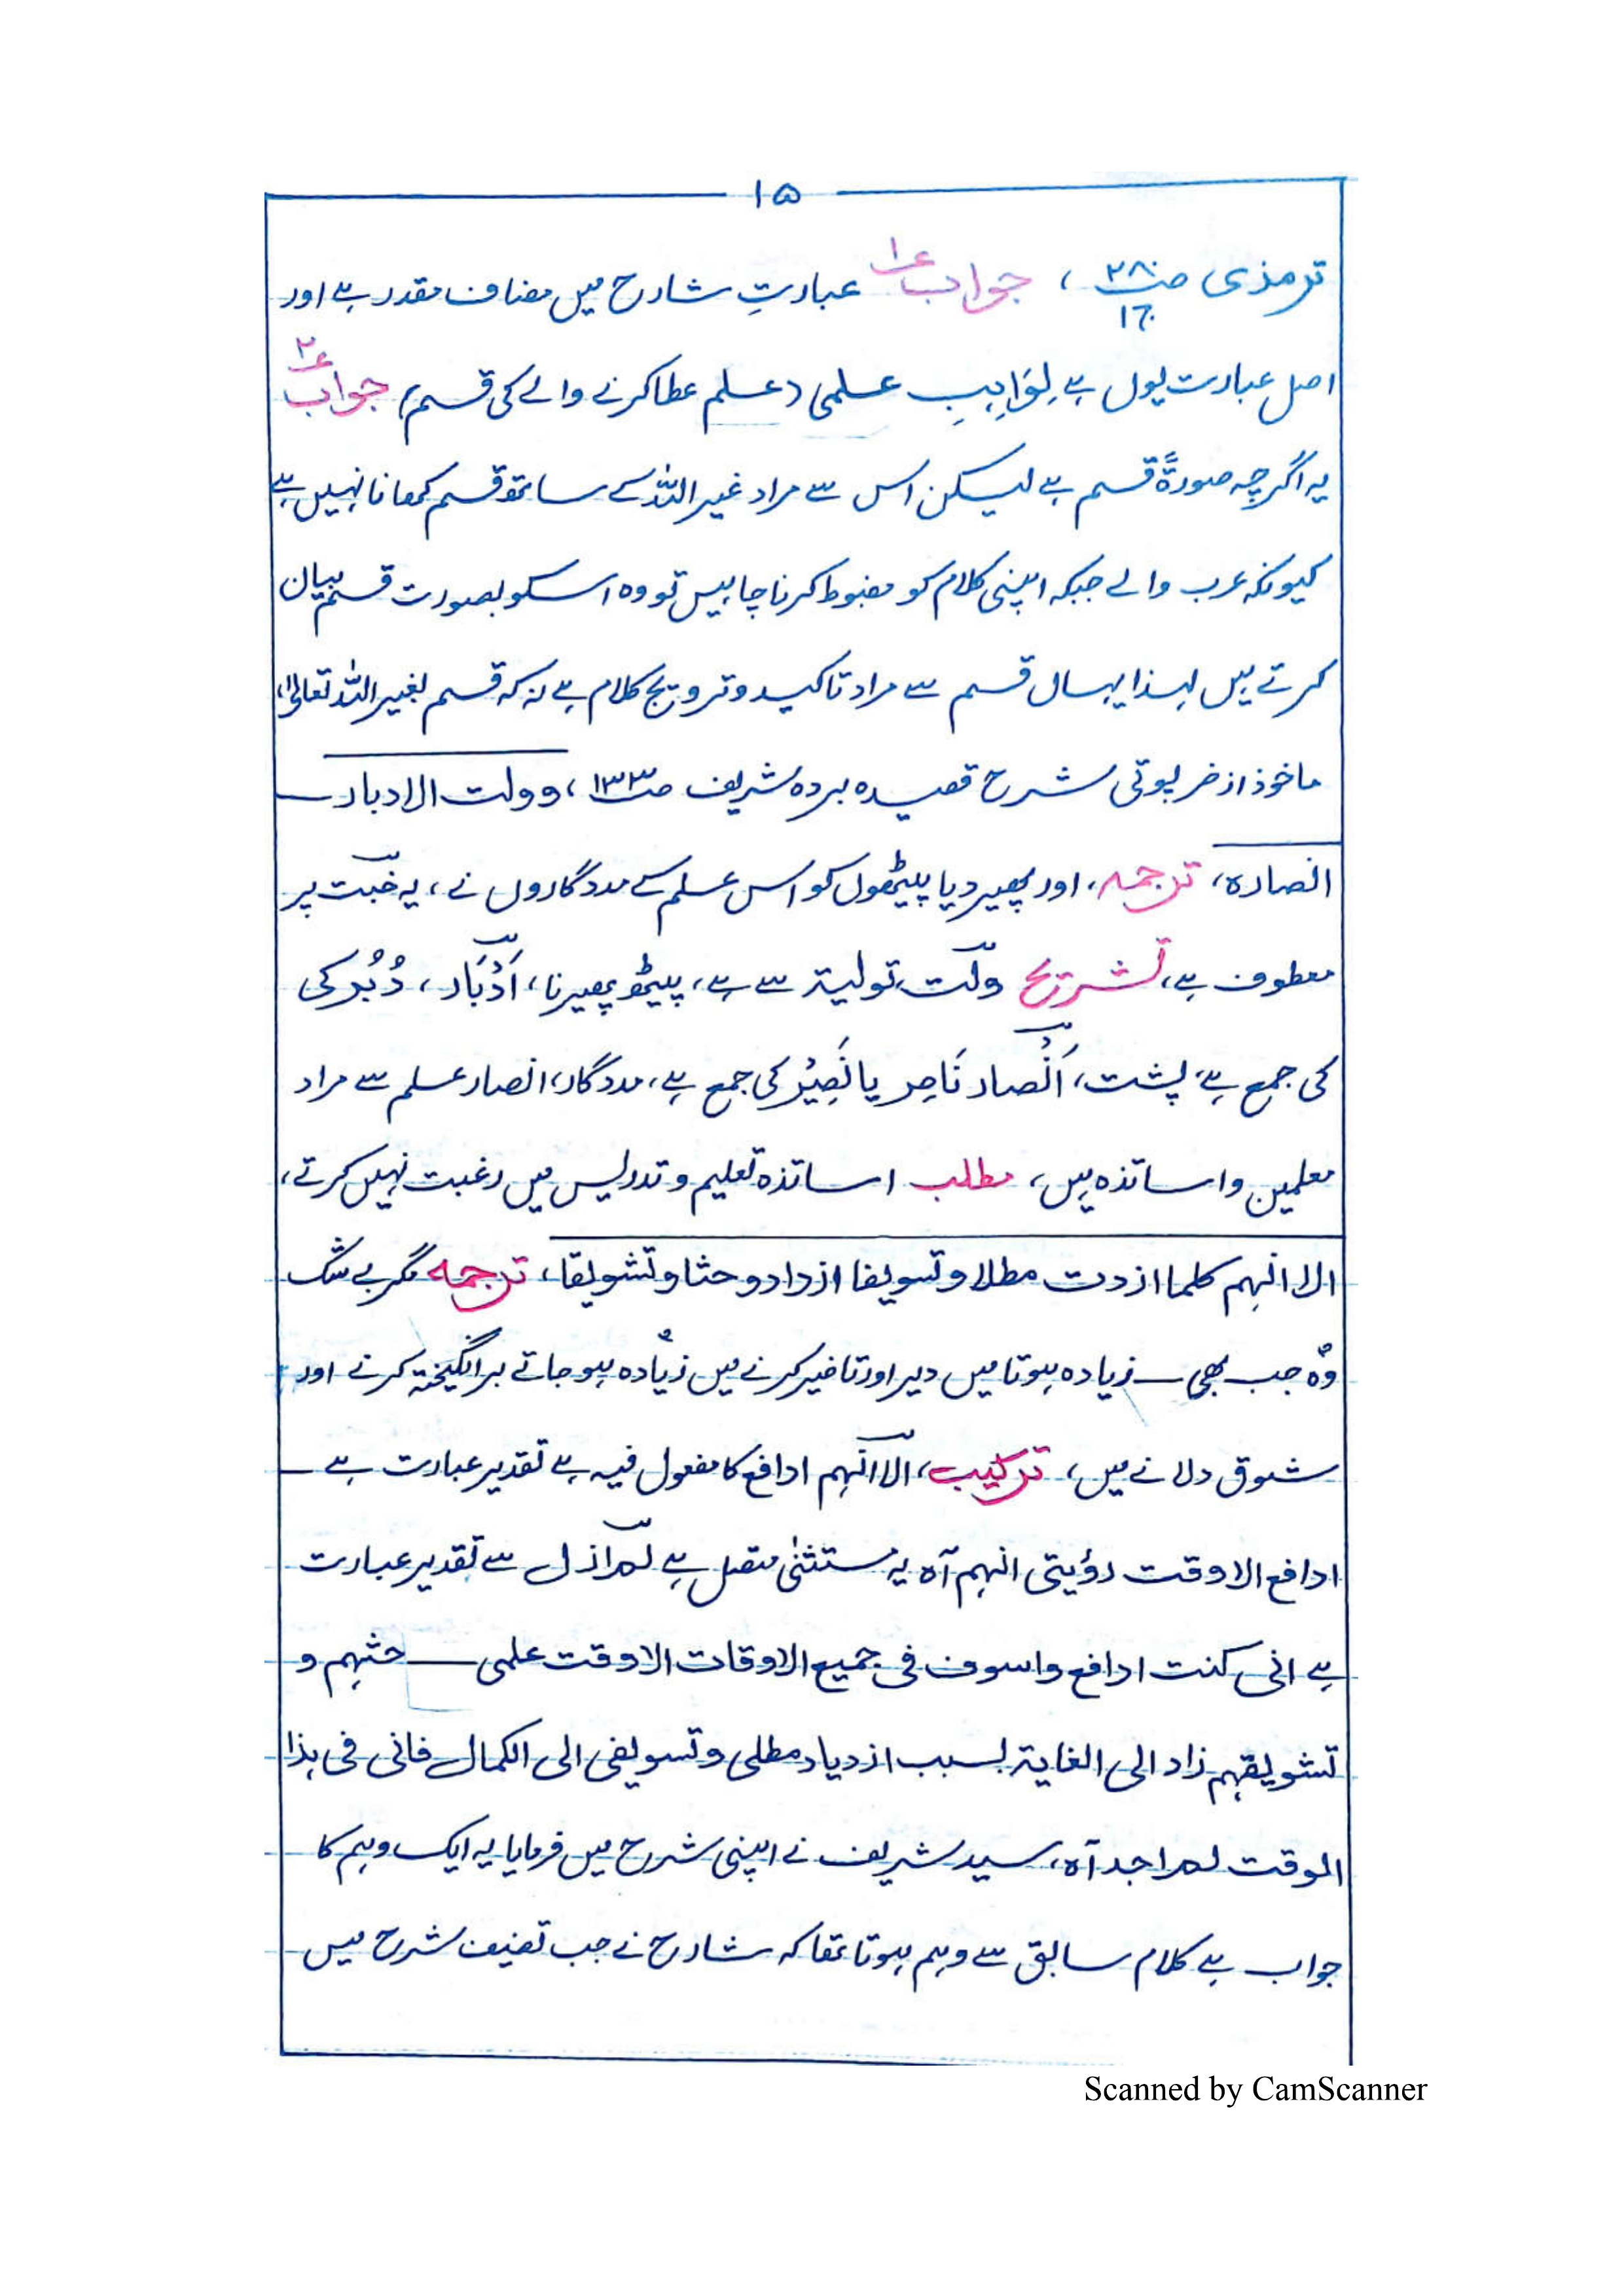 ۱۵
ترمذی صـ ۲۸۰ ج۱، جواب ع۱ عبارتِ شارح میں مضاف مقدر ہے اور
اصل عبارت یوں ہے لِوَاہِبِ علمی (علم عطا کرنے والے کی قسم) جواب ع۲
یہ اگرچہ صورۃً قسم ہے لیکن اس سے مراد غیر اللہ کے ساتھ قسم کھانا نہیں ہے
کیونکہ عرب والے جبکہ اپنی کلام کو مضبوط کرنا چاہیں تو وہ اسکو بصورت قسم بیان
کرتے ہیں لہذا یہاں قسم سے مراد تاکید و ترویج کلام ہے نہ کہ قسم بغیر اللہ تعالیٰ،
ماخوذ از خرپوتی شرح قصیدہ بردہ شریف صـ ۱۳۳، وولت الادبار
انصارہ، ترجمہ، اور پھیر دیا پیٹھوں کو اس علم کے مددگاروں نے، یہ خبت پر
معطوف ہے، تشریح ولّت، تولیۃ سے ہے، پیٹھ پھیرنا، اَدْبَار، دُبُر کی
کی جمع ہے، پشت، اَنْصار نَاصِر یا نَصِیْر کی جمع ہے، مددگار، انصار علم سے مراد
معلمین و اساتذہ ہیں، مطلب اساتذہ تعلیم و تدریس میں رغبت نہیں کرتے،
الا انہم کلما ازددت مطلا وتسویفا ازدادوحثا وتشویقا، ترجمہ مگر بے شک
وہ جب بھی زیادہ ہوتا میں دیر اور تاخیر کرنے میں زیادہ ہو جاتے برانگیختہ کرنے اور
شوق دلانے میں، ترکیب، الا انہم ادافع کا مفعول فیہ ہے تقدیر عبارت ہے
ادافع الا وقت رؤیتی انہم آہ یہ مستثنٰی متصل ہے لم ازل سے تقدیر عبارت
ہے انی کنت ادافع واسوف فی جمیع الاوقات الا وقت علمی حثہم و
تشویقہم زاد الی الغایۃ بسبب ازدیاد مطلی وتسویفی الی الکمال فانی فی ہذا
الوقت لم اجد آہ، سید شریف نے اپنی شرح میں فرمایا یہ ایک وہم کا
جواب ہے کلام سابق سے وہم ہوتا تھا کہ شارح نے جب تصنیف شرح میں
Scanned by CamScanner